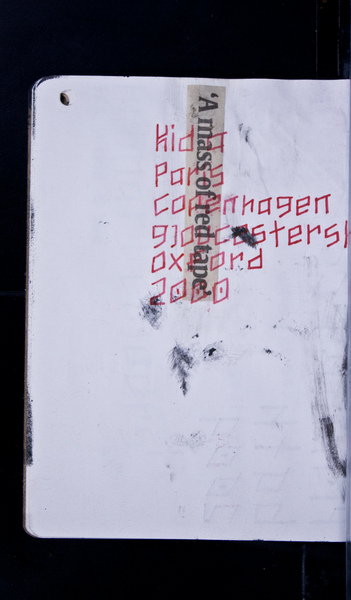 'A mass of red tape'
Kid A
Paris
copenhagen
gloucestersh
oxford
2000